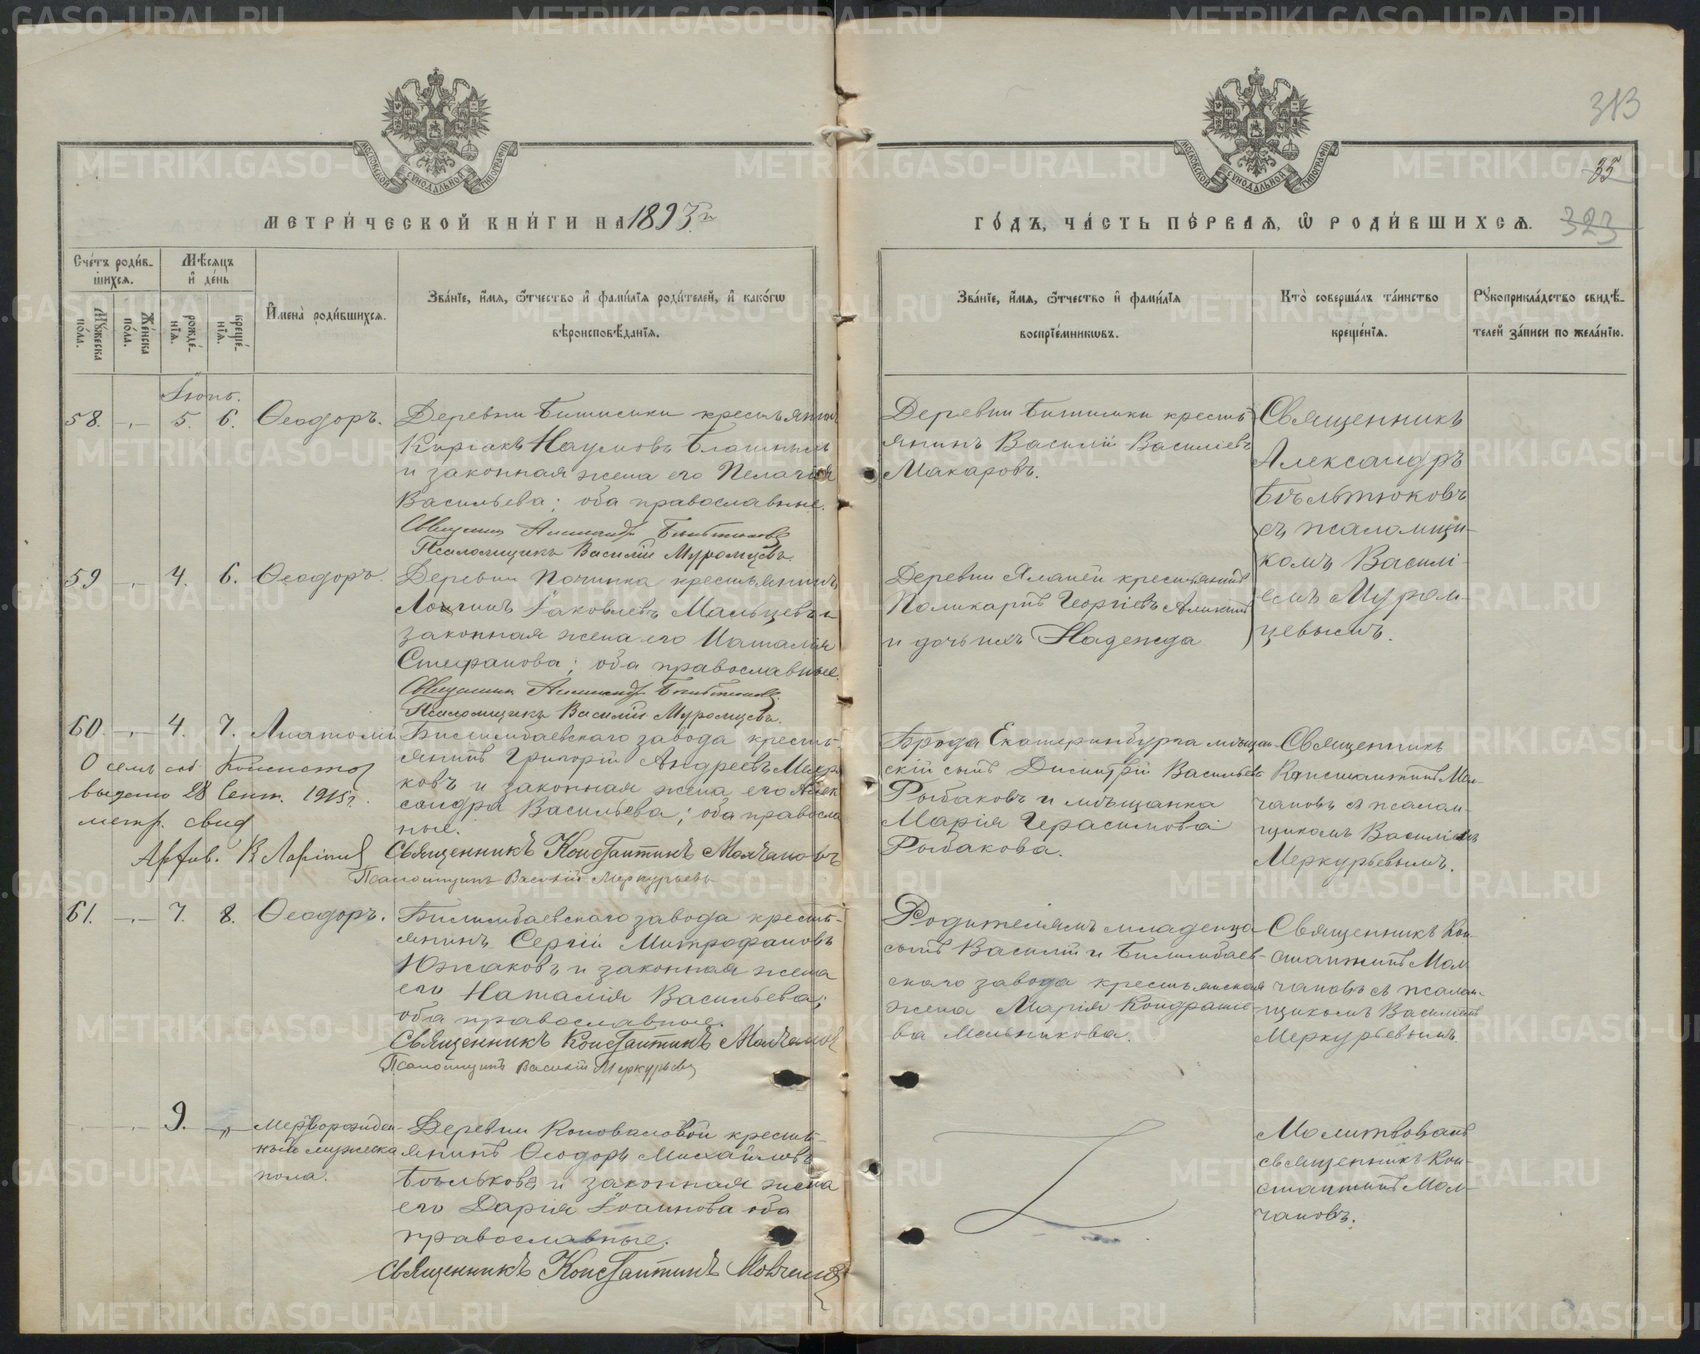 313
35
323
МЕТРИ́ЧЕСКОЙ КНИ́ГИ НА 1893 г.
ГО́ДЪ, ЧА́СТЬ ПЕ́РВАЯ, Ѡ РОДИ́ВШИХСЯ.
Сче́тъ роди́в-
шихся.
Мѣсяцъ
и де́нь
Мꙋжеска
по́ла.
Же́нска
по́ла.
рожде́-
нїя.
креще́-
нїя.
Имена̀ роди́вшихся.
Зва́нїе, и́мя, ѻ҆́тчество и фами́лїя роди́телей, и како́гѡ
вѣроисповѣ́данїя.
Зва́нїе, и́мя, ѻ҆́тчество и фами́лїя
воспрїе́мникѡвъ.
Кто̀ соверша́лъ та́инство
креще́нїя.
Рꙋкоприкла́дство свидѣ́-
телей за́писи по жела́нїю.
Іюнь.
58. 5. 6. Ѳеодоръ.
Деревни Битимки крестьянинъ
Кирьякъ Наумовъ
и законная жена его Пелагія
Васильева; оба православные.
Священникъ Александръ Бѣльтюковъ
Псаломщикъ Василій Муромцевъ.
Деревни Битимки кресть-
янинъ Василій Васильевъ
Макаровъ.
Священникъ
Александръ
Бѣльтюковъ
съ псаломщи-
комъ Васили-
емъ Муром-
цевымъ.
59 4. 6. Ѳеодоръ.
Деревни Починка крестьянинъ
Логинъ Іаковлевъ Мальцевъ и
законная жена его Наталія
Стефанова; оба православные.
Священникъ Александръ Бѣльтюковъ
Псаломщикъ Василій Муромцевъ.
Деревни крестьянинъ
Поликарпъ Георгіевъ
и дочь ихъ Надежда
60. 4. 7. Анатолій
Билимбаевскаго завода кресть-
янинъ Григорій Андреевъ
ковъ и законная жена его Алек
сандра Васильева; оба правосла
ные.
Священникъ Константинъ Молчановъ
Псаломщикъ Василій Меркурьевъ
О семъ
выдано 28 Сент. 1915 г.
метр. свид
Архив.
Города Екатеринбурга мѣщан
скій сынъ Димитрій Васильевъ
Рыбаковъ и мѣщанка
Марія Герасимова
Рыбакова.
Священникъ
Константинъ Мол-
чановъ съ псалом-
щикомъ Василіемъ
Меркурьевымъ.
61. 7. 8. Ѳеодоръ.
Билимбаевскаго завода кресть-
янинъ Сергій Митрофановъ
Южаковъ и законная жена
его Наталія Васильева;
оба православные.
Священникъ Константинъ Молчановъ
Псаломщикъ Василій Меркурьевъ
Родителямъ младенца
сынъ Василій и Билимбаев-
скаго завода крестьянская
жена Марія Кондратье-
ва Мельникова.
Священникъ Кон-
стантинъ Мол
чановъ съ псалом-
щикомъ Василіемъ
Меркурьевымъ.
9. „ Мертворожден-
ный мужеска
пола.
Деревни Коноваловой кресть-
янинъ Ѳеодоръ Михайловъ
Бѣльковъ и законная жена
его Дарія Іоаннова оба
православные.
Священникъ Константинъ Молчановъ
Молитвовалъ
священникъ Кон-
стантинъ Мол-
чановъ.
METRIKI.GASO-URAL.RU